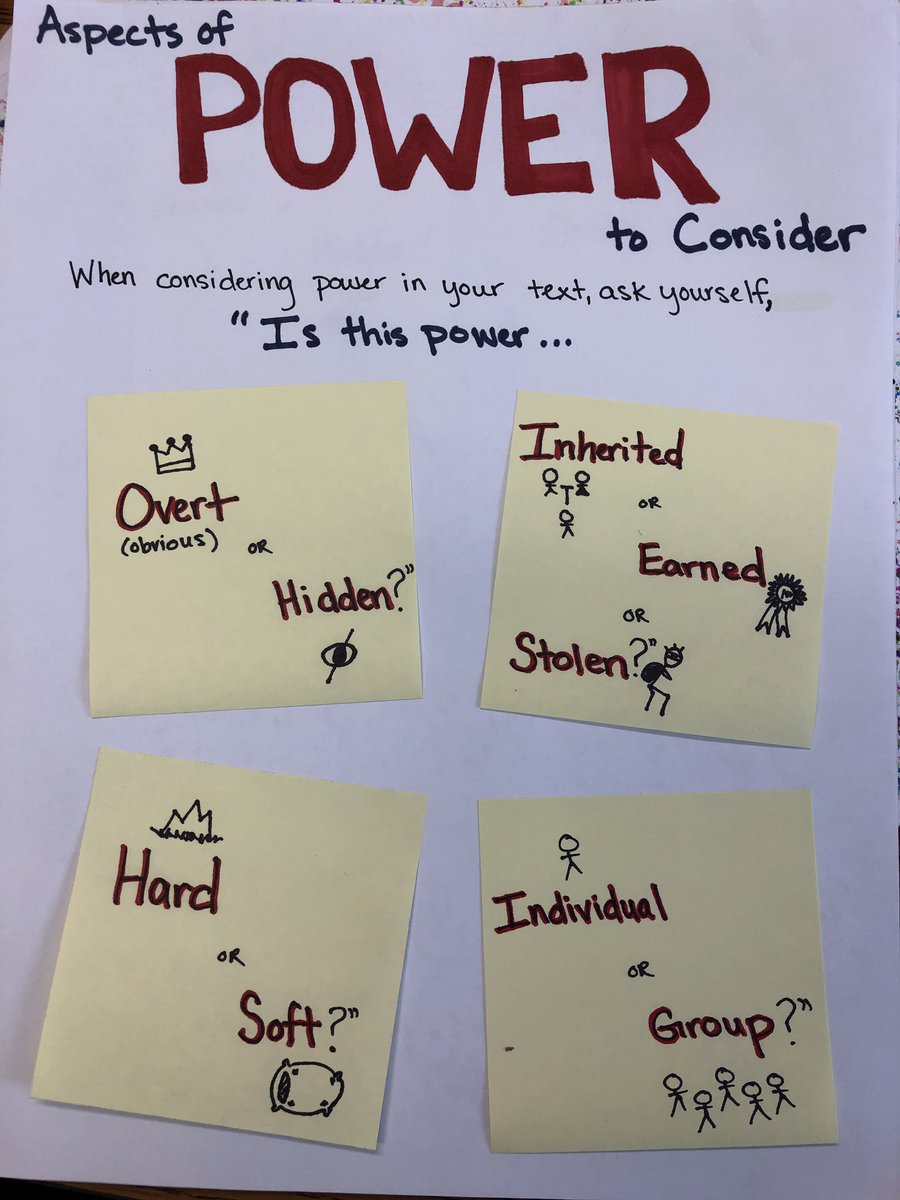 Aspects of
POWER
to Consider
When considering power in your text, ask yourself,
"Is this power...
Overt
(obvious) OR
Hidden?"
Inherited
OR
Earned
OR
Stolen?"
Hard
OR
Soft?"
Individual
OR
Group?"